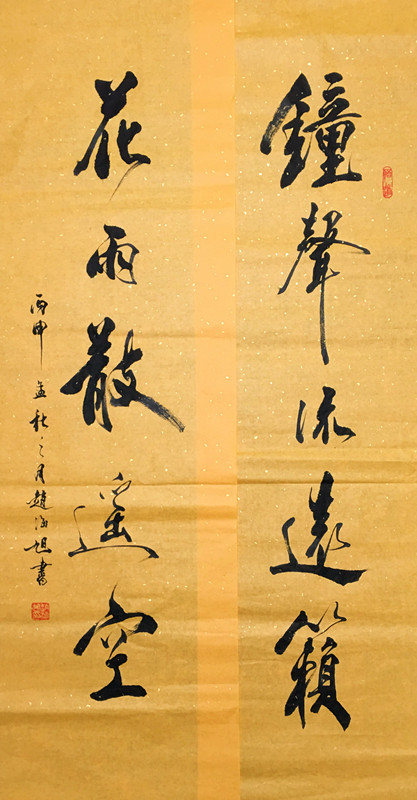 鐘聲流遠籟
花雨散遥空
丙申孟秋之月趙海旭書